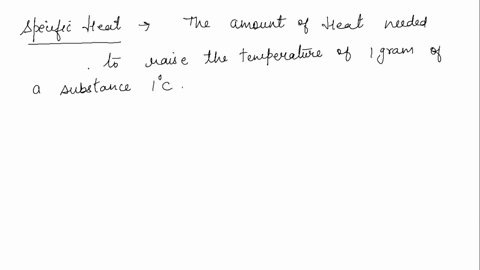 Specific Heat → The amount of Heat needed
. to raise the temperature of 1 gram of
a substance 1°C.